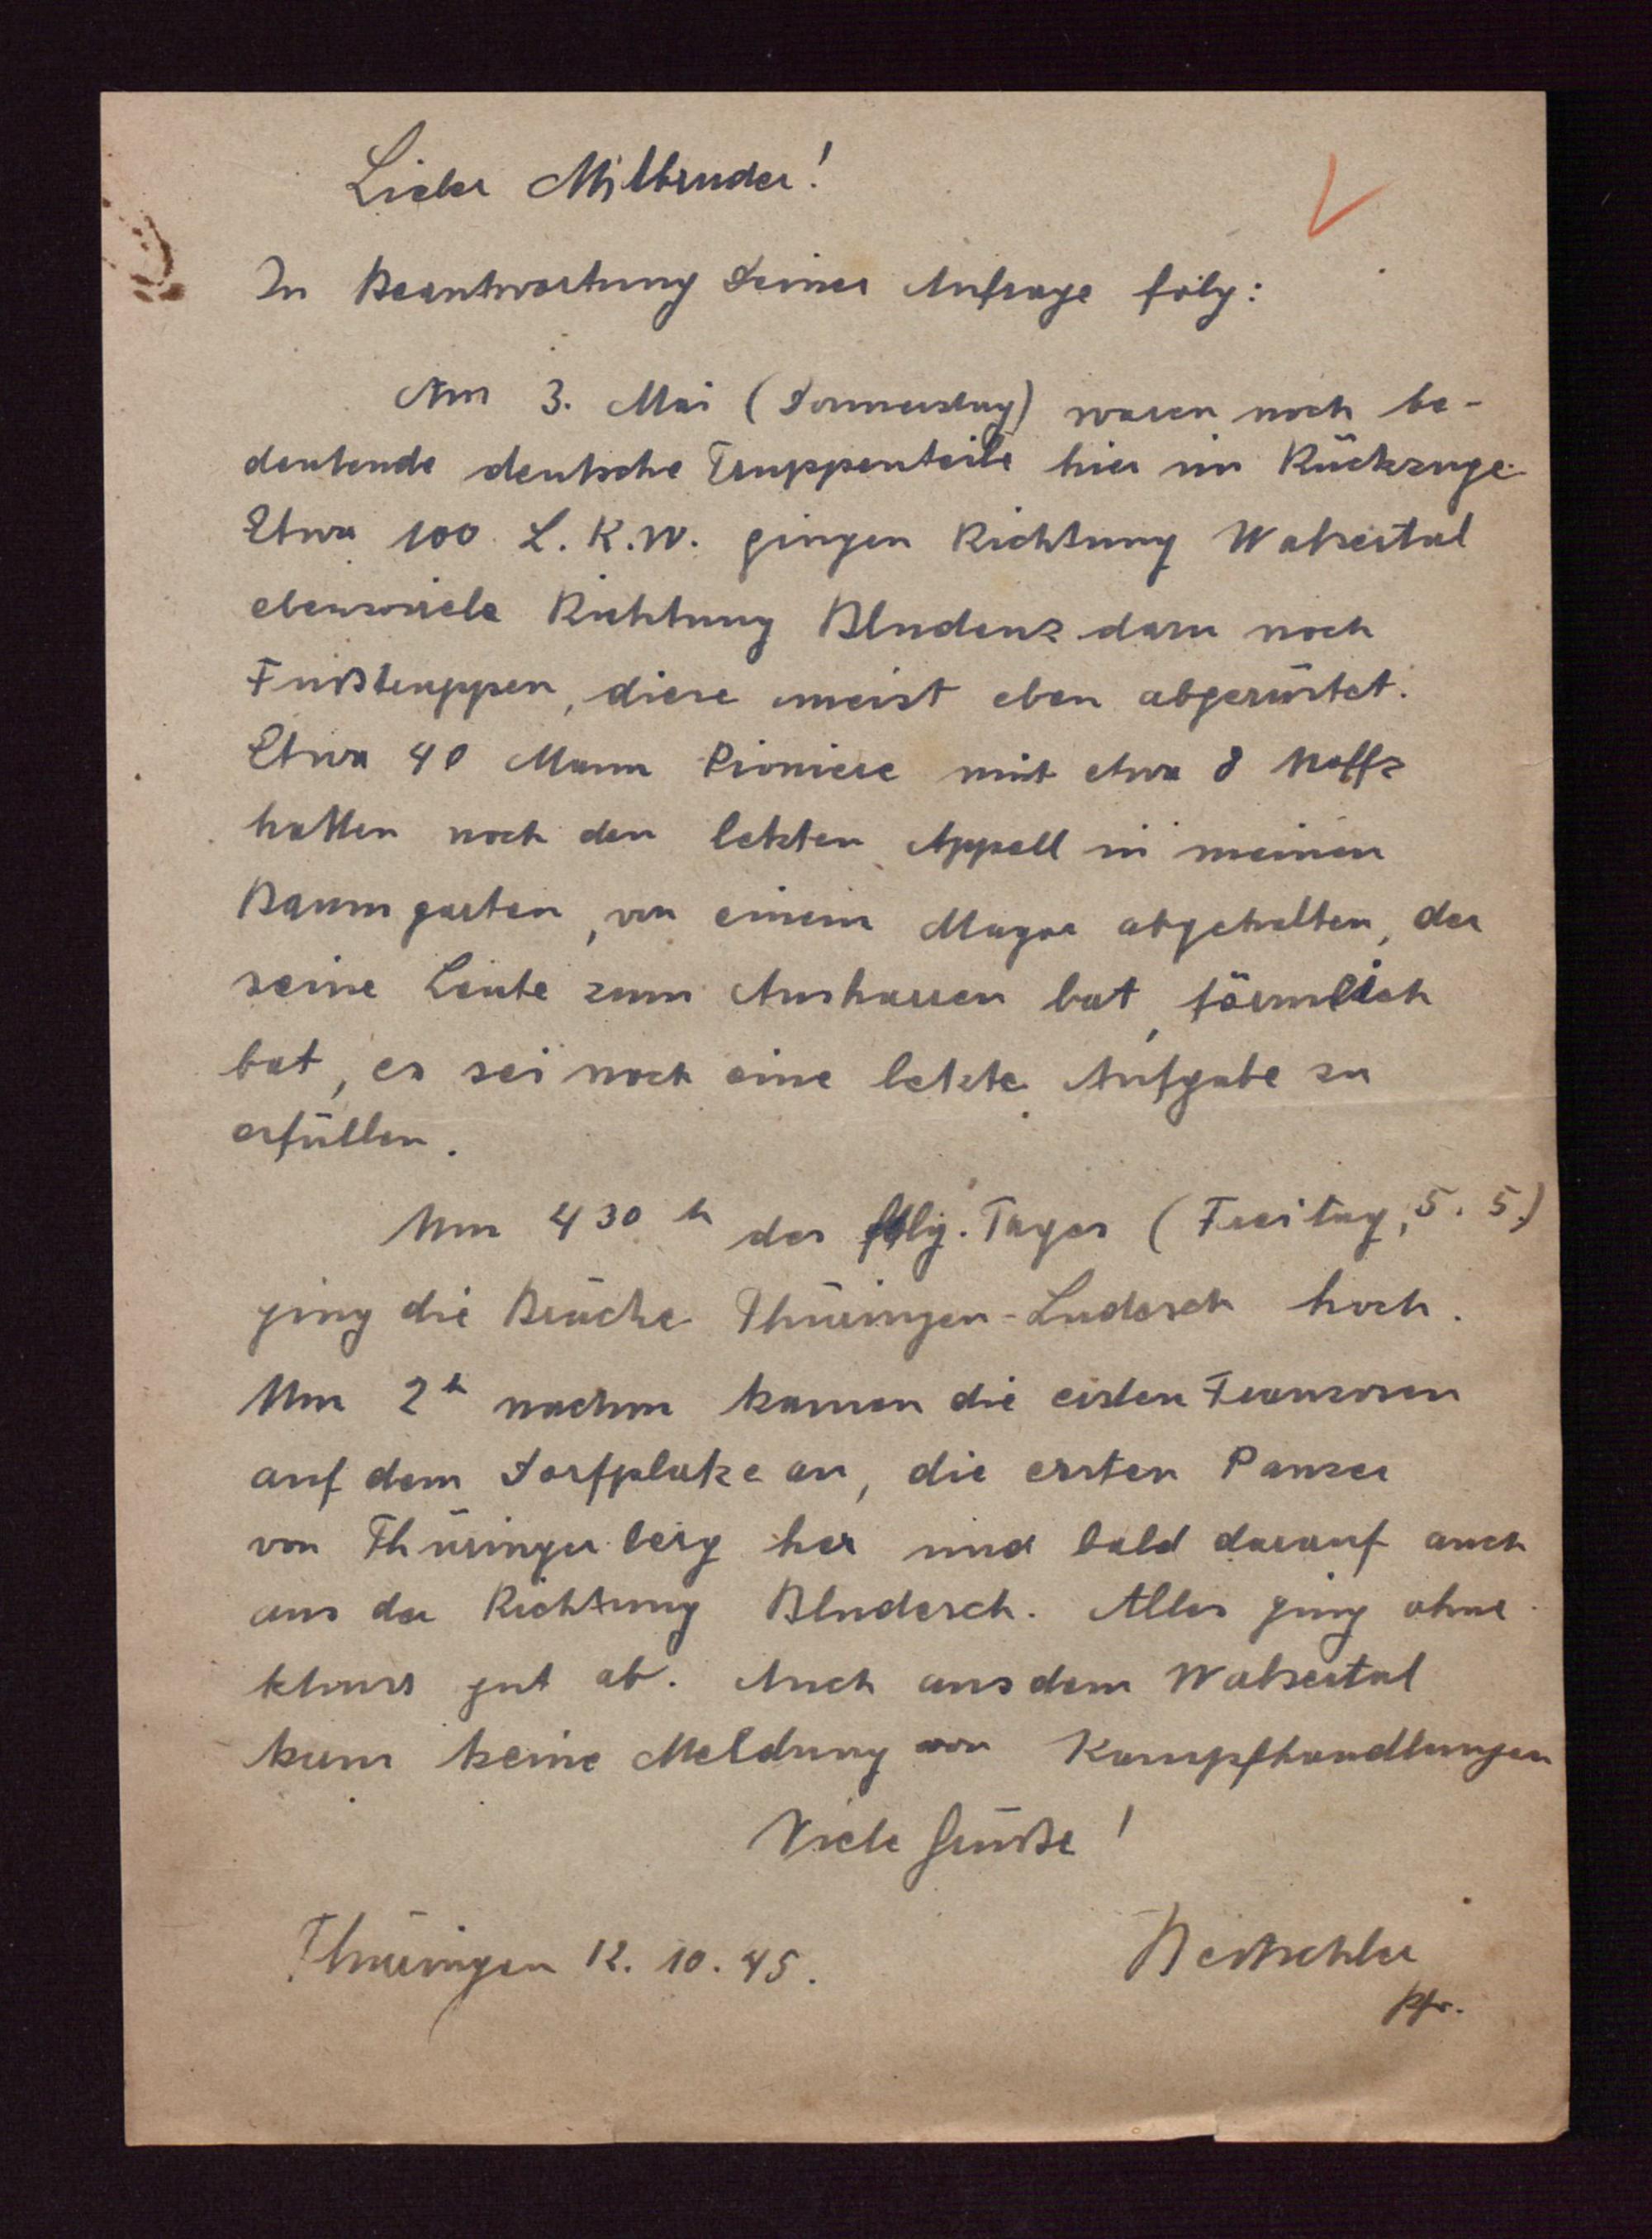 Lieber Mitbruder!
In Beantwortung Deiner Anfrage folg:
Am 3. Mai (Donnerstag) waren noch be-
deutende deutsche Truppenteile hier im Rückzuge.
Etwa 100 L.K.W. gingen Richtung Walsertal
ebensoviele Richtung Bludenz dazu noch
Fußtruppen, diese meist eben abgerüstet.
Etwa 40 Mann Pioniere mit etwa 8
hatten noch den letzten Appell in meinem
Baumgarten, von einem Mayor abgehalten, der
seine Leute zum Ausharren bat, förmlich
bat, es sei noch eine letzte Aufgabe zu
erfüllen.
Um 430 h des flg. Tages (Freitag, 5. 5.)
ging die Brücke Thüringen-Ludesch hoch.
Um 2h nachm kamen die ersten Franzosen
auf dem Dorfplatze an, die ersten Panzer
von Thüringerberg her und bald darauf auch
aus der Richtung Bludesch. Alles ging ohne
gut ab. Auch aus dem Walsertal
kam keine Meldung von Kampfhandlungen
Viele Grüße!
Thüringen 12. 10. 45.
Bertschler
Pfr.